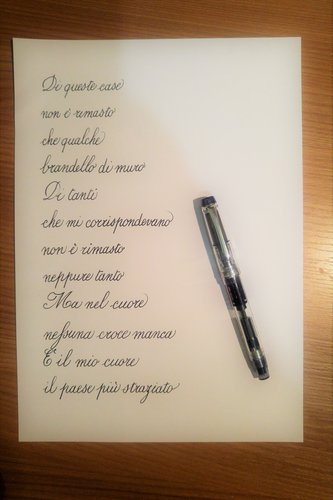 Di queste case
non è rimasto
che qualche
brandello di muro
Di tanti
che mi corrispondevano
non è rimasto
neppure tanto
Ma nel cuore
neſsuna croce manca
È il mio cuore
il paese più straziato